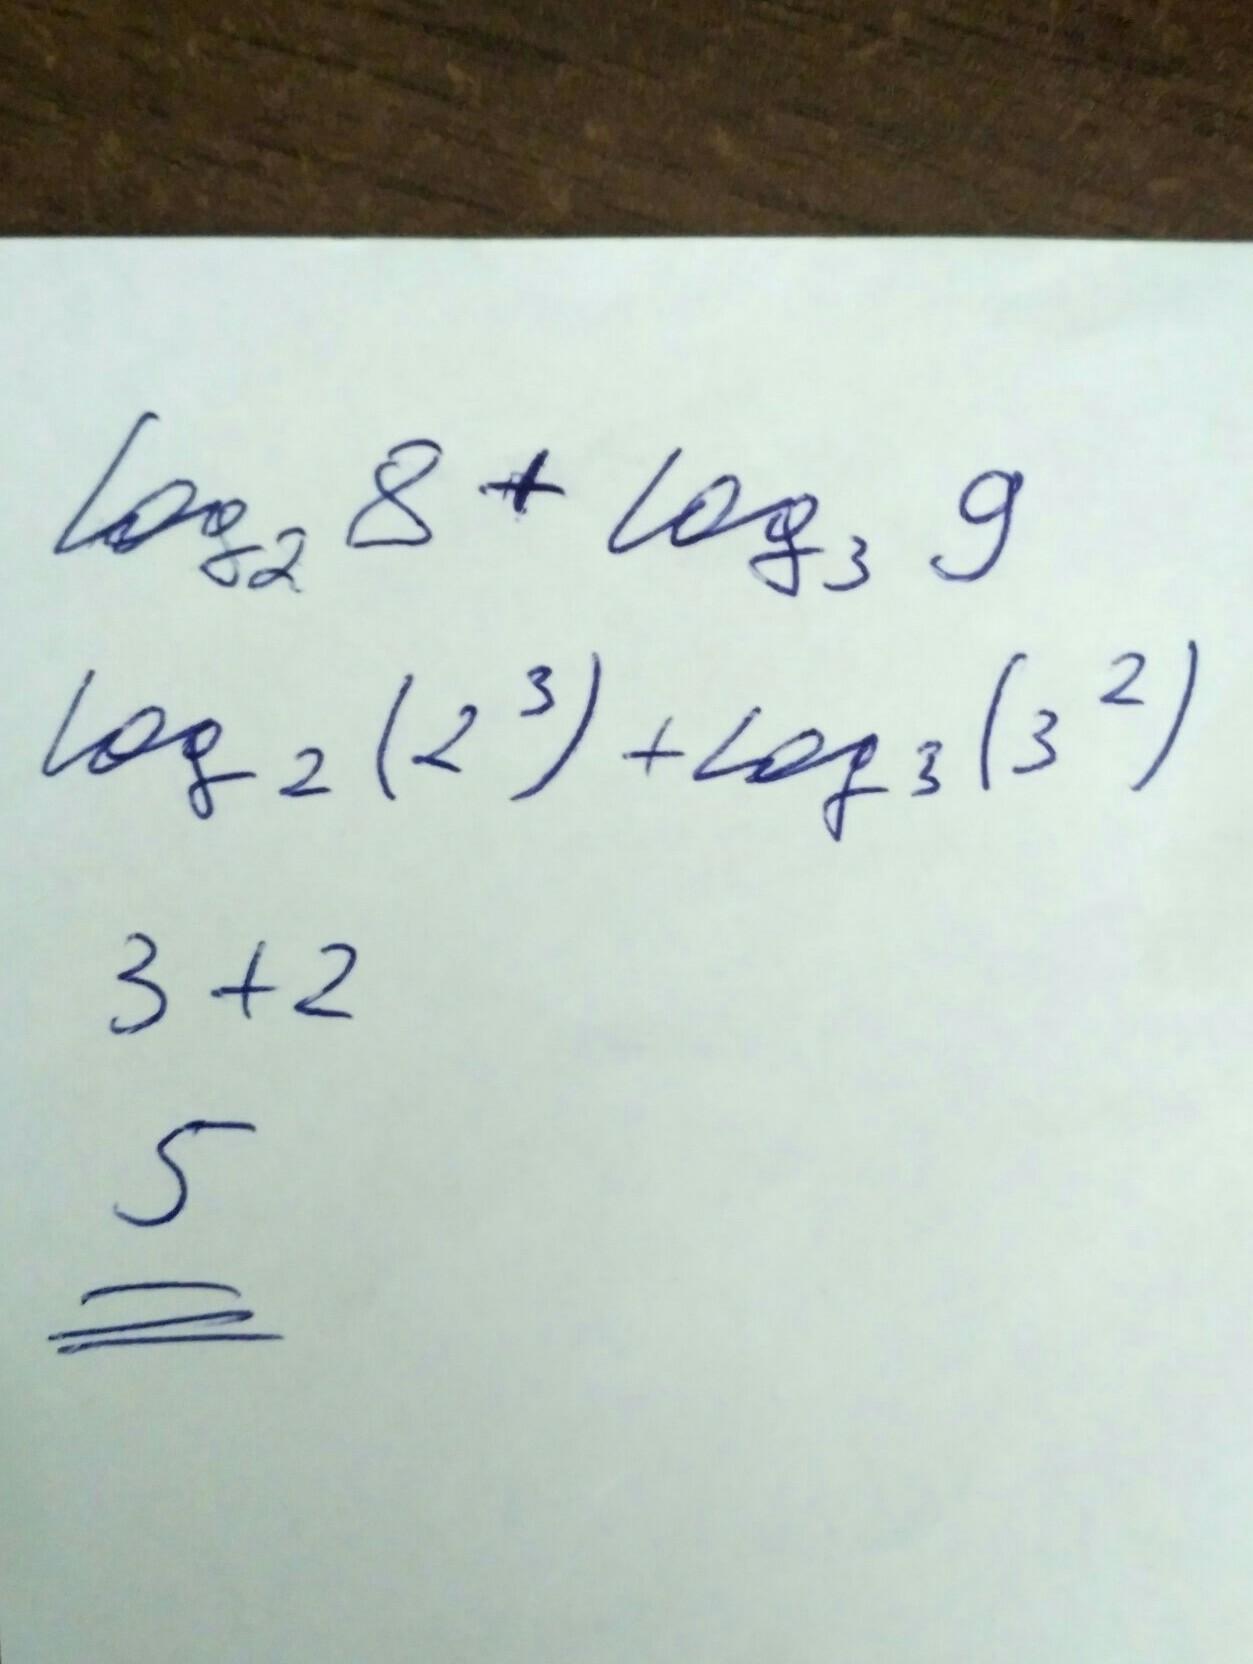 log₂ 8 + log₃ 9
log₂ (2³) + log₃ (3²)
3 + 2
5